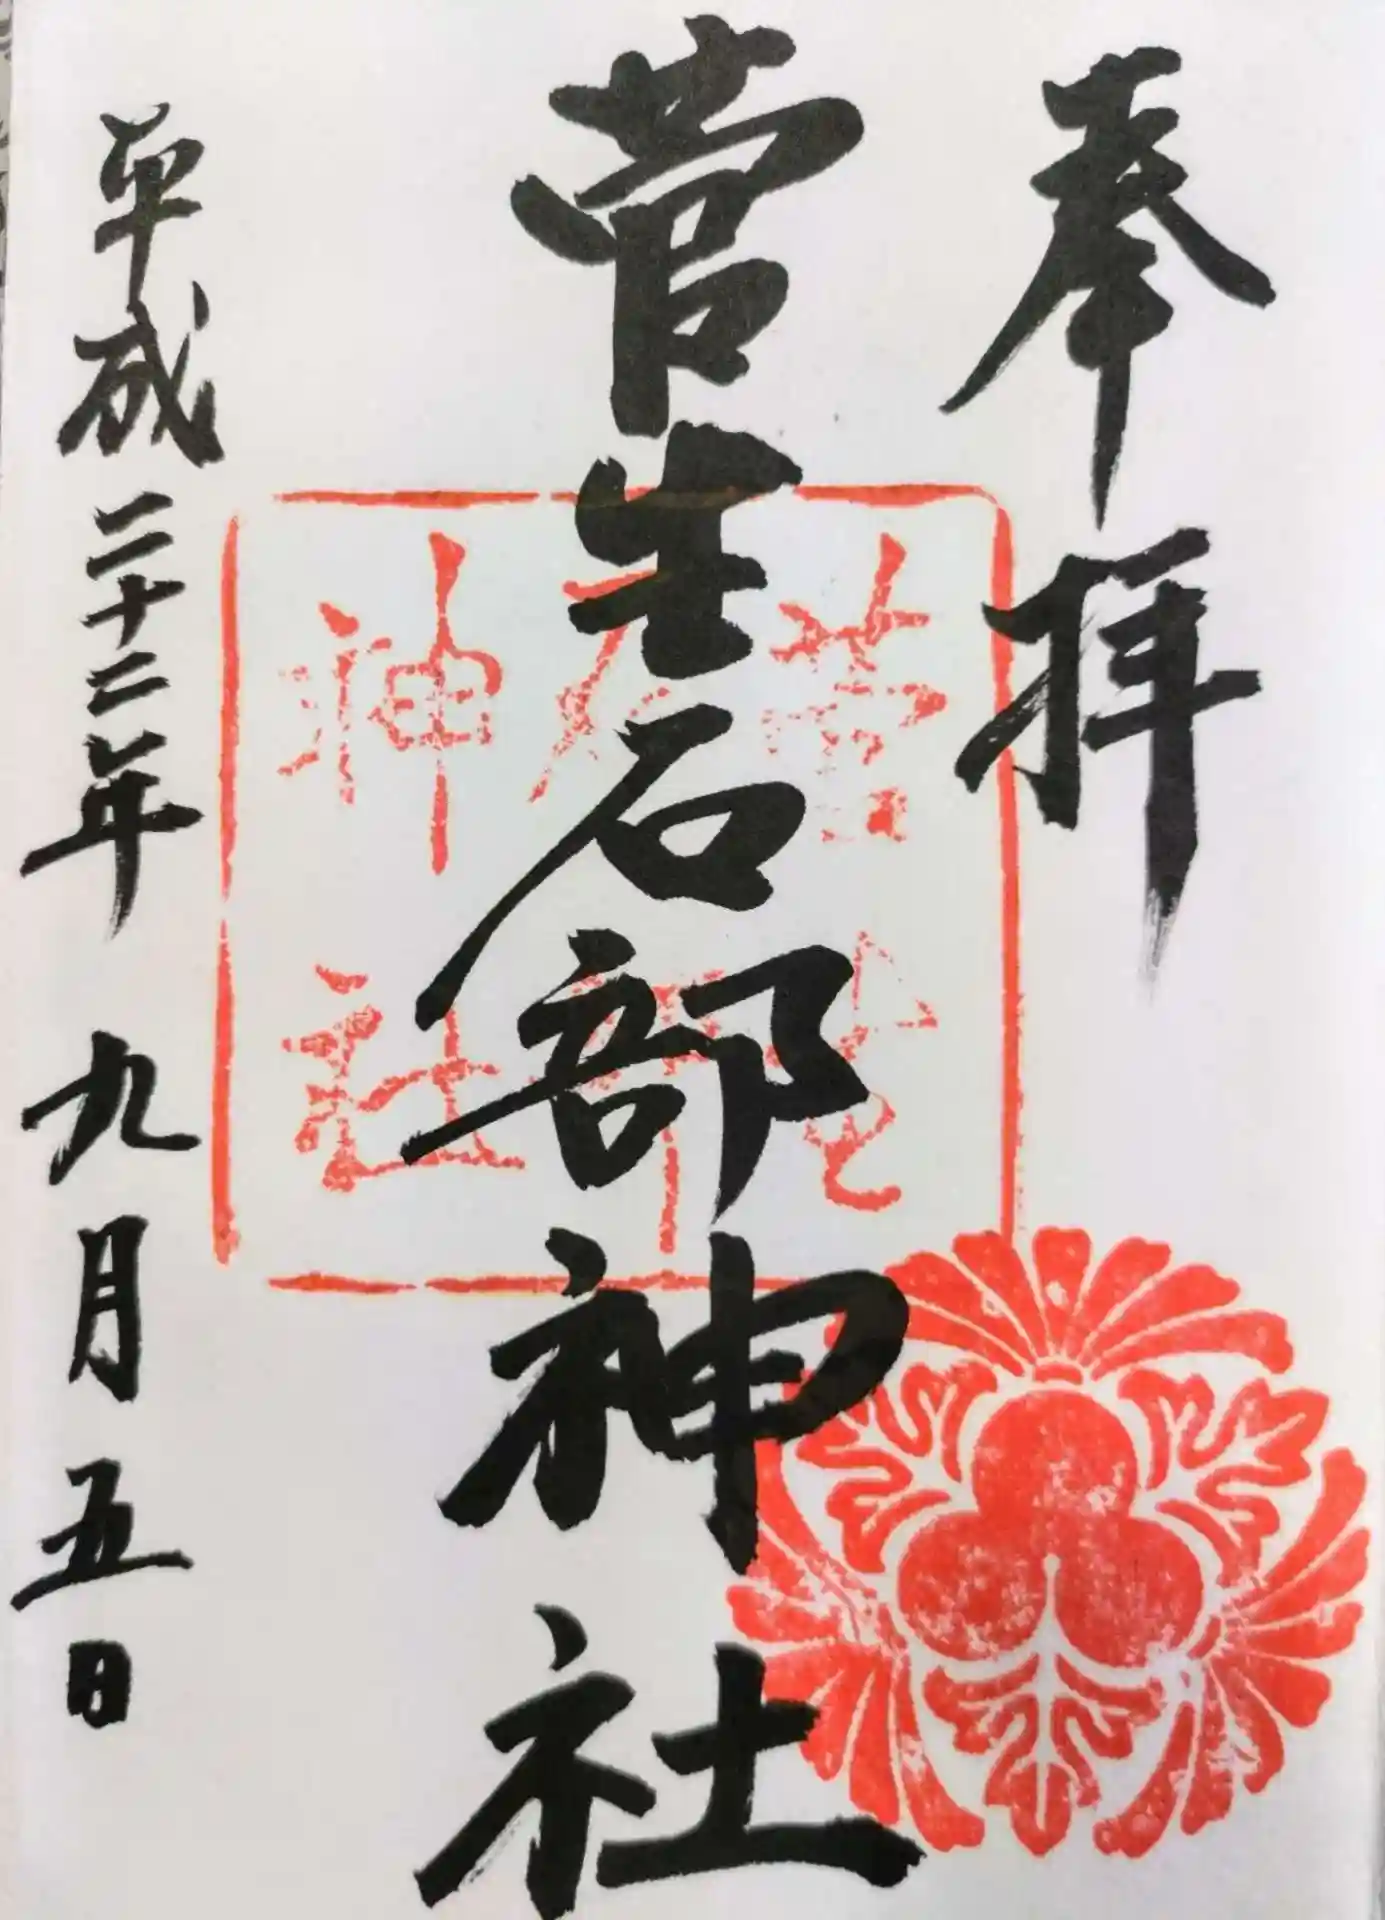 奉拝
菅生石部神社
平成二十二年九月五日
菅生
石部
神社